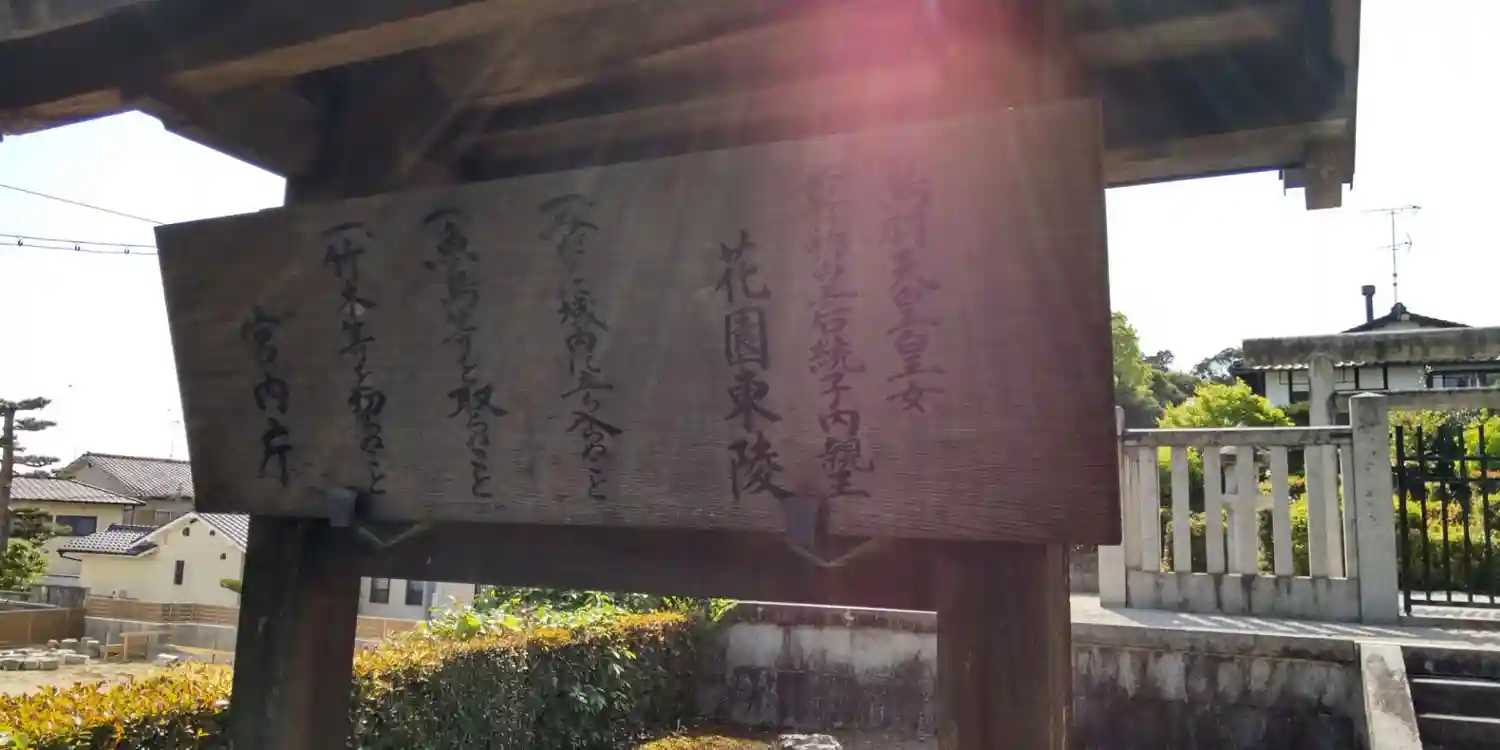 鳥羽天皇皇女
皇后統子内親王
花園東陵
一、みだりに域内に立ち入らぬこと
一、魚鳥等を取らぬこと
一、竹木等を切らぬこと
宮内庁